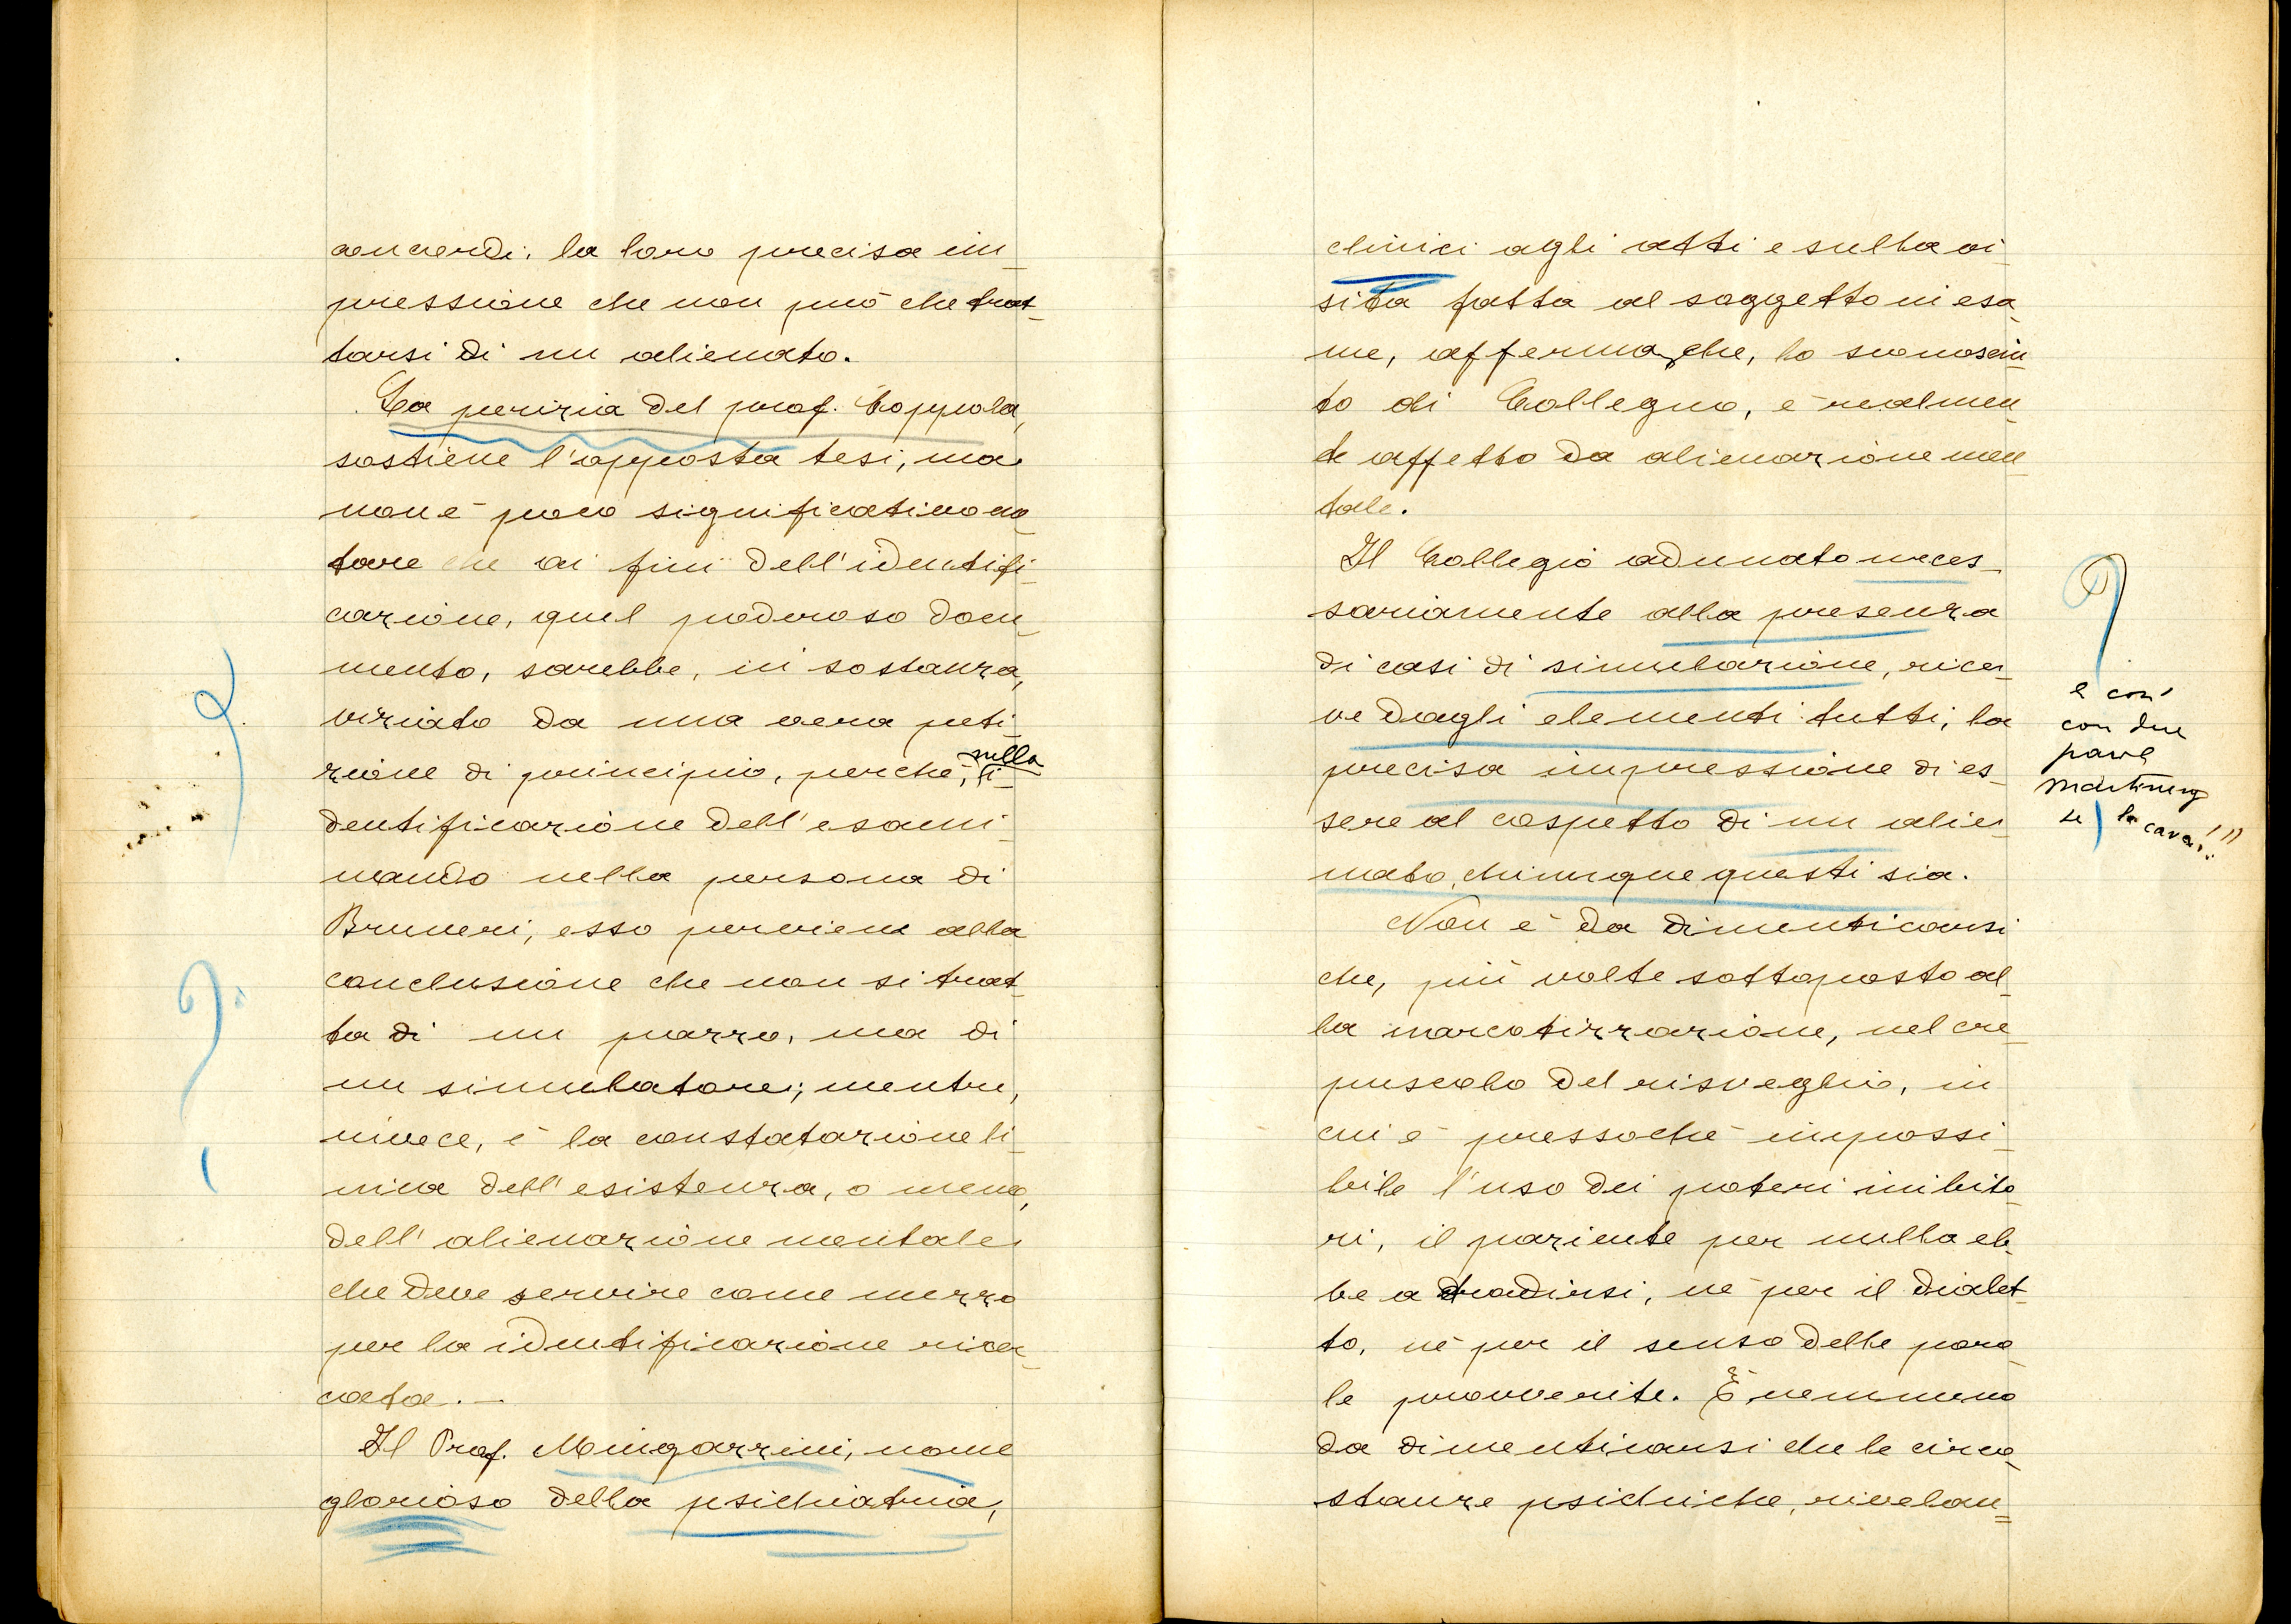 concordi, la loro precisa im_
pressione che non può che trat_
tarsi di un alienato.
La perizia del prof. Coppola,
sostiene l'opposta tesi, ma
non è poco significativo no_
tare che ai fini dell'identifi_
cazione, quel poderoso docu_
mento, sarebbe, in sostanza,
viziato da una vera peti_
zione di principio, perchè, sulla i_
dentificazione dell'esami_
nando nella persona di
Bruneri, esso perviene alla
conclusione che non si trat_
ta di un pazzo, ma di
un simulatore; mentre,
invece, è la constatazione li_
nica dell'esistenza, o meno,
dell'alienazione mentale
che deve servire come mezzo
per la identificazione ricer_
cata._
Il Prof. Mingazzini, nome
glorioso della psichiatria,
clinici agli atti e sulla vi_
sita fatta al soggetto in esa_
me, afferma, che, lo sconosciu_
to di Collegno, è realmen_
te affetto da alienazione men_
tale.
Il Collegio adunato neces_
sariamente alla presenza
di casi di simulazione, rice_
ve dagli elementi tutti, la
precisa impressione di es_
sere al cospetto di un alie_
nato, chiunque questi sia.
Non è da dimenticarsi
che, più volte sottoposto al_
la narcotizzazione, nel cre_
puscolo del risveglio, in
cui è pressochè impossi_
bile l'uso dei poteri inibito_
ri, il paziente per nulla eb_
be a tradirsi, nè per il dialet_
to, nè per il senso delle paro_
le proverite. È nemmeno
da dimenticarsi che le circo_
stanze psichiche, rivelan=
e così
con due
parole
se la cava!!!